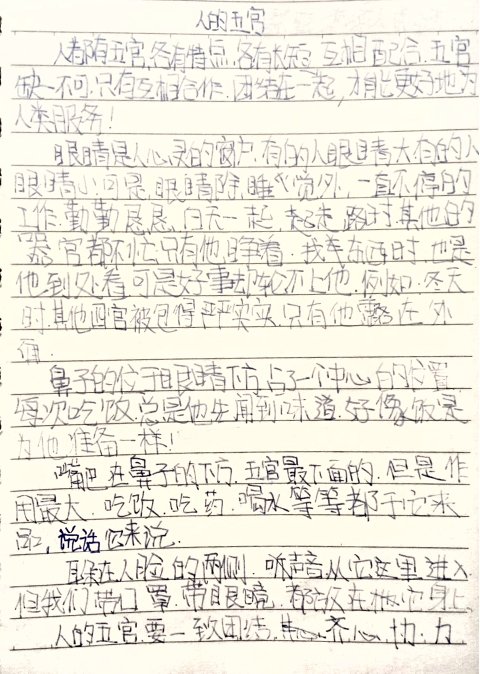 人的五官
人都有五官,各有特点,各有长短,互相配合,五官
缺一不可,只有互相合作,团结在一起,才能更好地为
人类服务!
眼睛是人心灵的窗户,有的人眼睛大有的人
眼睛小可是,眼睛除睡觉外,一直不停的
工作,勤勤恳恳,白天一起走路时,其他的
器官都不忙只有他睁着,找车东西时,也是
他到处看可是好事却轮不上他,例如:冬天
时,其他四官被包得严严实实,只有他露在外
面.
鼻子的位于眼睛下方,占了一个中心的位置
每次吃饭,总是他先闻到味道,好像饭是
为他准备一样!
嘴巴在鼻子的下方,五官最下面的,但是作
用最大,吃饭,吃药,喝水等等都于它来
说话它来说.
耳朵在人脸的两侧,听声音从它这里进入
但我们带口罩,带眼镜,都放在它身上
人的五官,要一致团结,齐心,协力